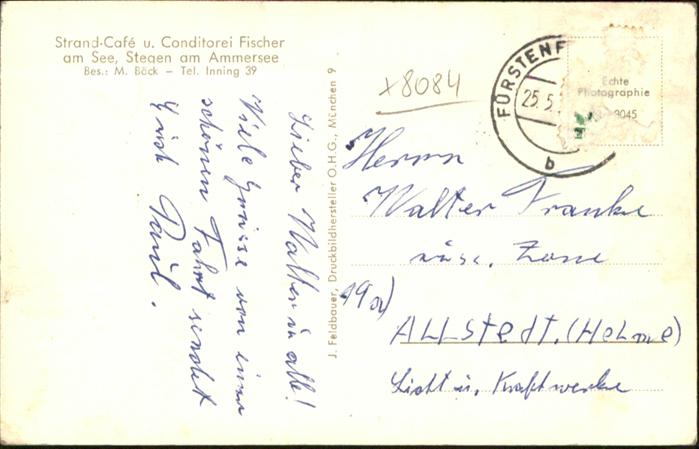 Strand-Café u. Conditorei Fischer
am See, Stegen am Ammersee
Bes.: M. Böck – Tel. Inning 39
x8084
FÜRSTENF
25.5.
b
Echte
Photographie
9045
Lieber Walter u. alle!
Viele Grüsse von einer
schönen Fahrt sendet
Euch Paul.
J. Feldbauer, Druckbildhersteller O.H.G., München 9
Herrn
Walter Franke
russ. Zone
19a)
ALLSTEDT. (HELME)
Licht u. Kraftwerke